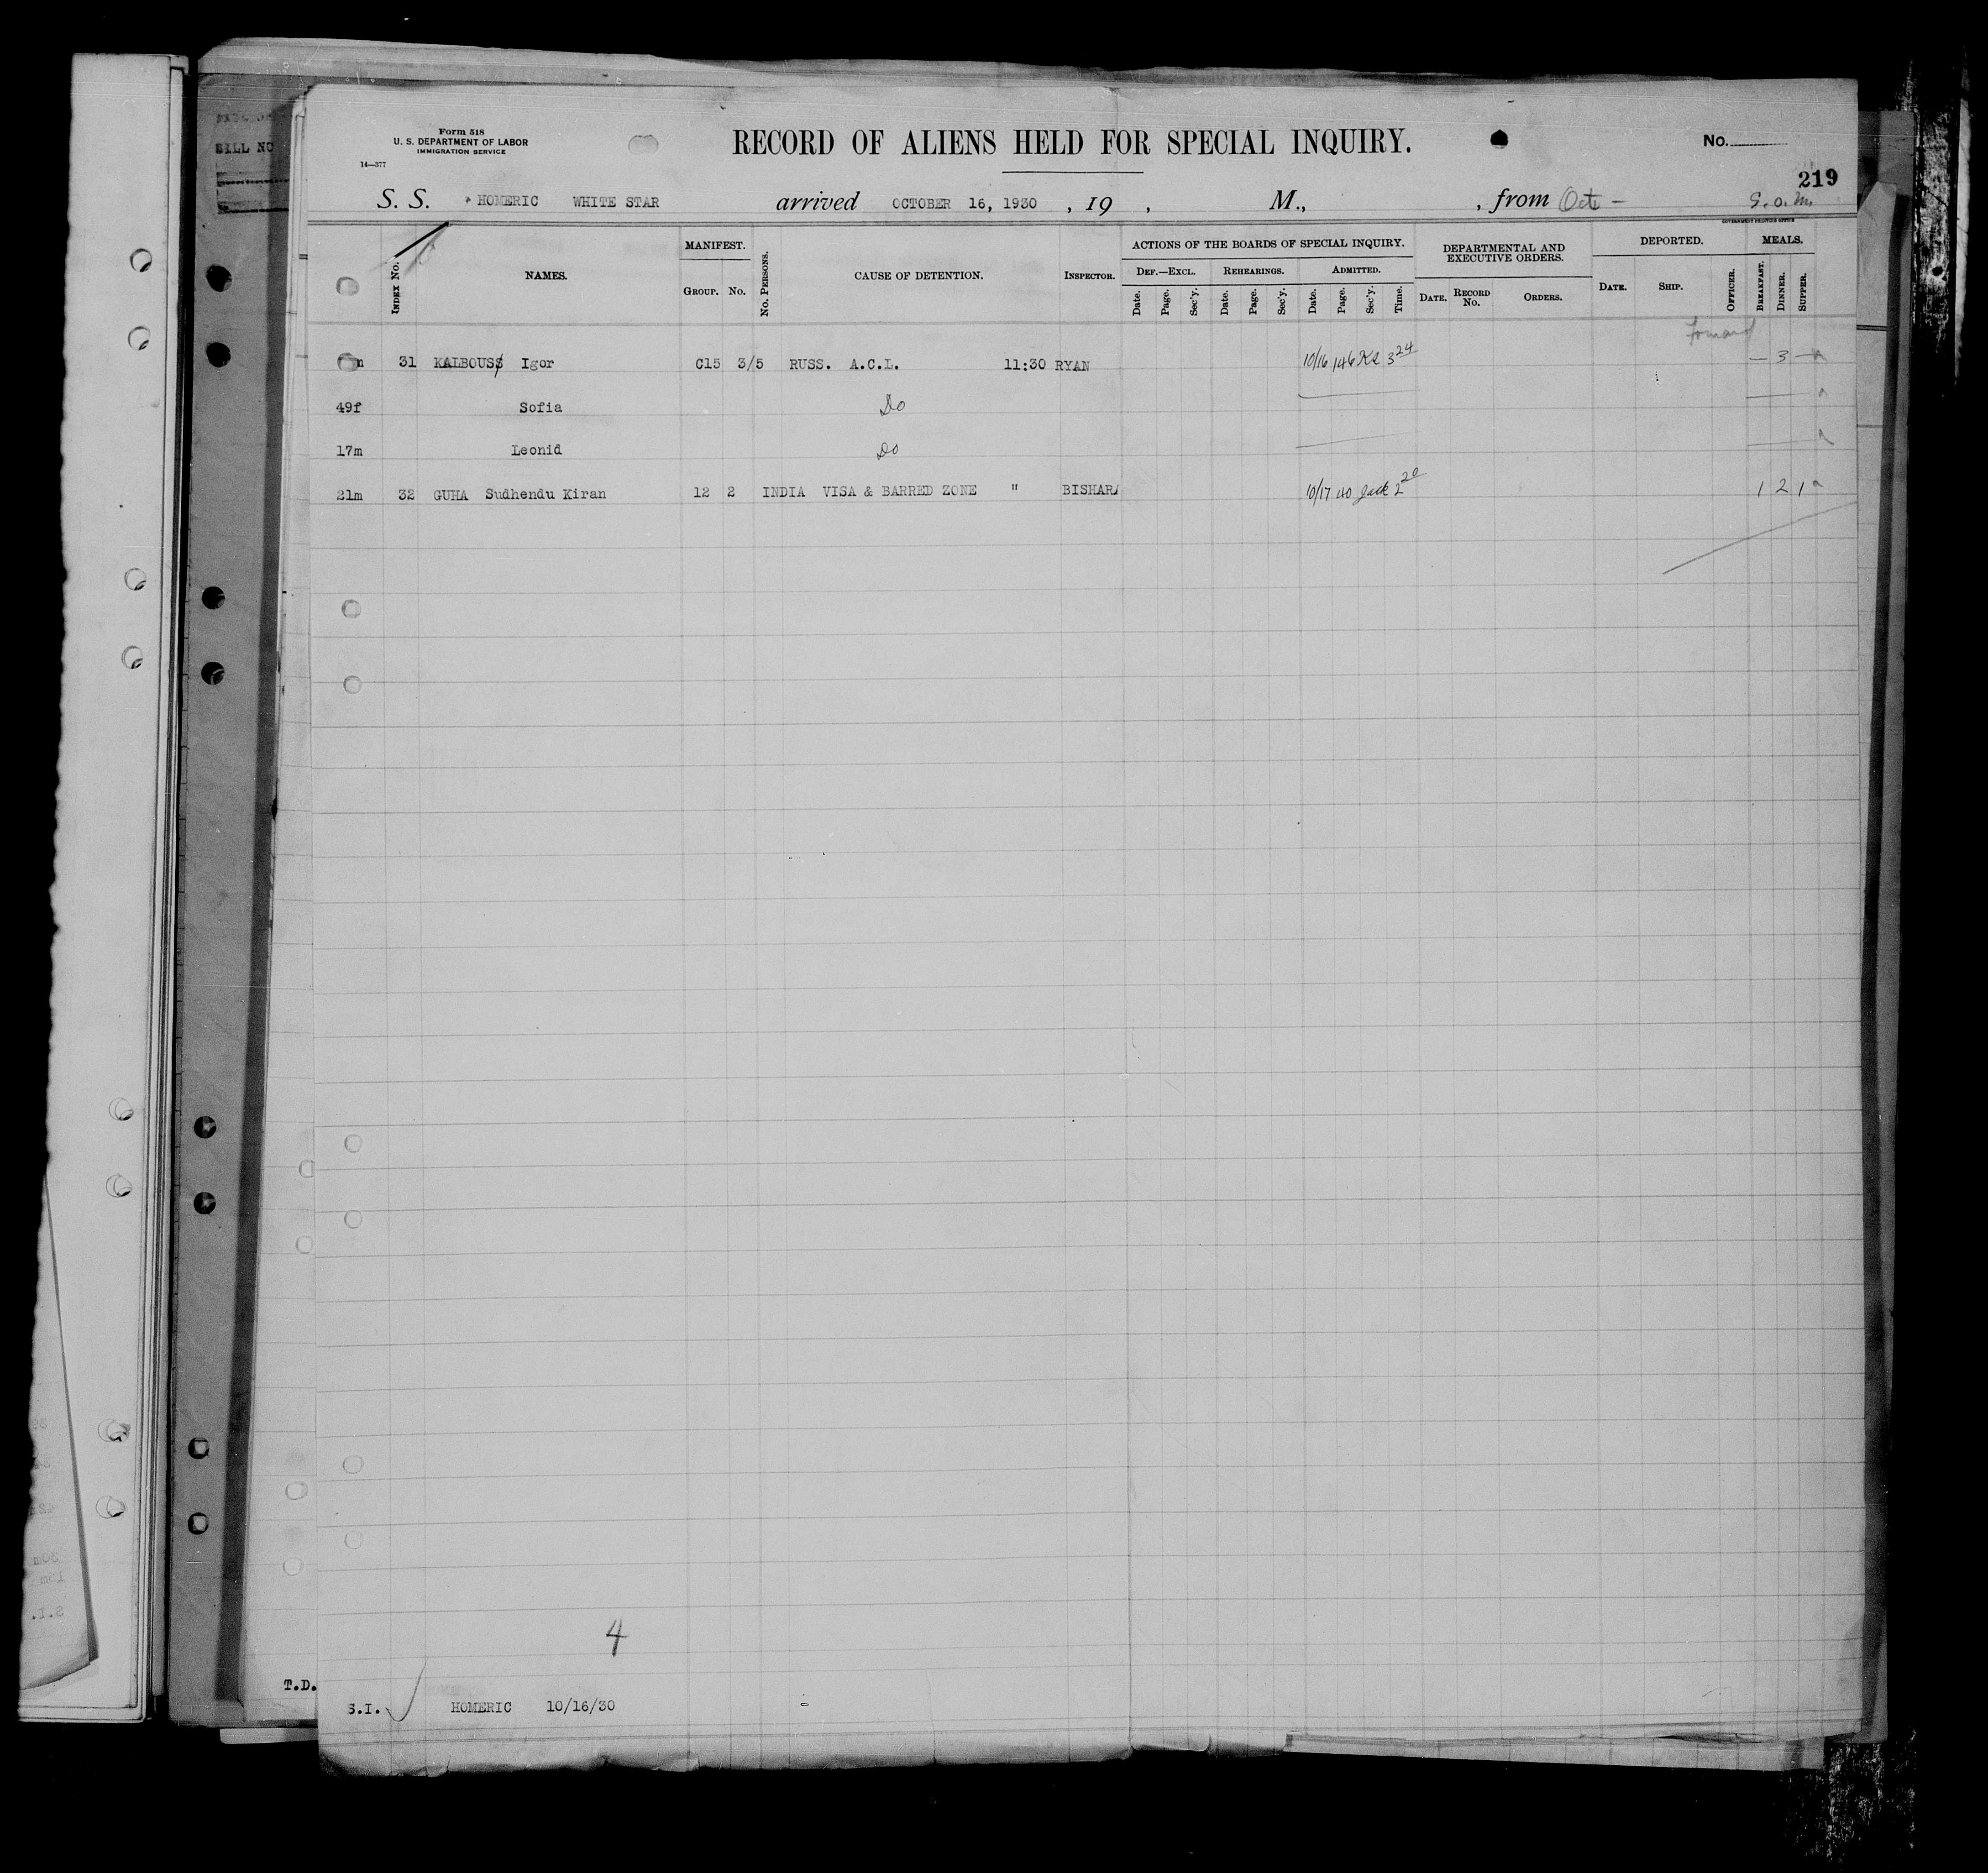 BILL NO
Form 518
U. S. DEPARTMENT OF LABOR
IMMIGRATION SERVICE
14—377
RECORD OF ALIENS HELD FOR SPECIAL INQUIRY.
No.
219
S. S. HOMERIC WHITE STAR arrived OCTOBER 16, 1930 , 19 , M., , from Oct -
GOVERNMENT PRINTING OFFICE
INDEX NO. NAMES. MANIFEST. GROUP. NO. NO. PERSONS. CAUSE OF DETENTION. INSPECTOR. ACTIONS OF THE BOARDS OF SPECIAL INQUIRY. DEF.—EXCL. Date. Page. Sec'y. REHEARINGS. Date. Page. Sec'y. ADMITTED. Date. Page. Sec'y. Time. DEPARTMENTAL AND EXECUTIVE ORDERS. DATE. RECORD NO. ORDERS. DEPORTED. DATE. SHIP. OFFICER. MEALS. BREAKFAST. DINNER. SUPPER.
Forward
m 31 KALBOUSS Igor C15 3/5 RUSS. A.C.L. 11:30 RYAN 10/16 146 3 24 — 3 —
49f Sofia Do
17m Leonid Do
21m 32 GUHA Sudhendu Kiran 12 2 INDIA VISA & BARRED ZONE " BISHARA 10/17 40 Jack 2 20 1 2 1
4
T.D.
S.I. HOMERIC 10/16/30